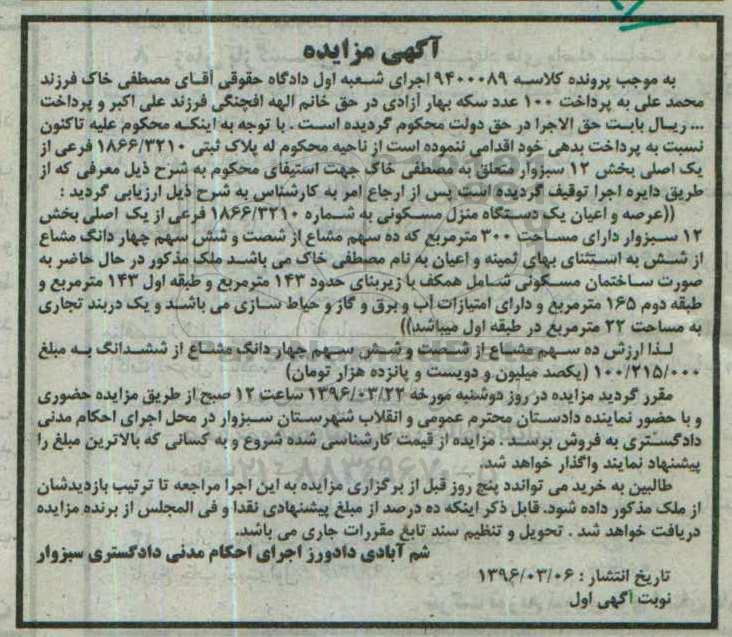 آگهی مزایده
به موجب پرونده کلاسه ۹۴۰۰۰۸۹ اجرای شعبه اول دادگاه حقوقی آقای مصطفی خاک فرزند
محمد علی به پرداخت ۱۰۰ عدد سکه بهار آزادی در حق خانم الهه افچنگی فرزند علی اکبر و پرداخت
... ریال بابت حق الاجرا در حق دولت محکوم گردیده است . با توجه به اینکه محکوم علیه تاکنون
نسبت به پرداخت بدهی خود اقدامی ننموده است از ناحیه محکوم له پلاک ثبتی ۱۸۶۶/۳۲۱۰ فرعی از
یک اصلی بخش ۱۲ سبزوار متعلق به مصطفی خاک جهت استیفای محکوم به شرح ذیل معرفی که از
طریق دایره اجرا توقیف گردیده است پس از ارجاع امر به کارشناس به شرح ذیل ارزیابی گردید :
((عرصه و اعیان یک دستگاه منزل مسکونی به شماره ۱۸۶۶/۳۲۱۰ فرعی از یک اصلی بخش
۱۲ سبزوار دارای مساحت ۳۰۰ مترمربع که ده سهم مشاع از شصت و شش سهم چهار دانگ مشاع
از شش به استثنای بهای ثمینه و اعیان به نام مصطفی خاک می باشد ملک مذکور در حال حاضر به
صورت ساختمان مسکونی شامل همکف با زیربنای حدود ۱۴۳ مترمربع و طبقه اول ۱۴۳ مترمربع و
طبقه دوم ۱۶۵ مترمربع و دارای امتیازات آب و برق و گاز و حیاط سازی می باشد و یک دربند تجاری
به مساحت ۲۲ مترمربع در طبقه اول میباشد))
لذا ارزش ده سهم مشاع از شصت و شش سهم چهار دانگ مشاع از ششدانگ به مبلغ
۱۰۰/۲۱۵/۰۰۰ (یکصد میلیون و دویست و پانزده هزار تومان)
مقرر گردید مزایده در روز دوشنبه مورخه ۱۳۹۶/۰۳/۲۲ ساعت ۱۲ صبح از طریق مزایده حضوری
و با حضور نماینده دادستان محترم عمومی و انقلاب شهرستان سبزوار در محل اجرای احکام مدنی
دادگستری به فروش برسد . مزایده از قیمت کارشناسی شده شروع و به کسانی که بالاترین مبلغ را
پیشنهاد نمایند واگذار خواهد شد.
طالبین به خرید می توانند پنج روز قبل از برگزاری مزایده به این اجرا مراجعه تا ترتیب بازدیدشان
از ملک مذکور داده شود. قابل ذکر اینکه ده درصد از مبلغ پیشنهادی نقدا و فی المجلس از برنده مزایده
دریافت خواهد شد . تحویل و تنظیم سند تابع مقررات جاری می باشد.
شم آبادی دادورز اجرای احکام مدنی دادگستری سبزوار
تاریخ انتشار : ۱۳۹۶/۰۳/۰۶
نوبت آگهی اول